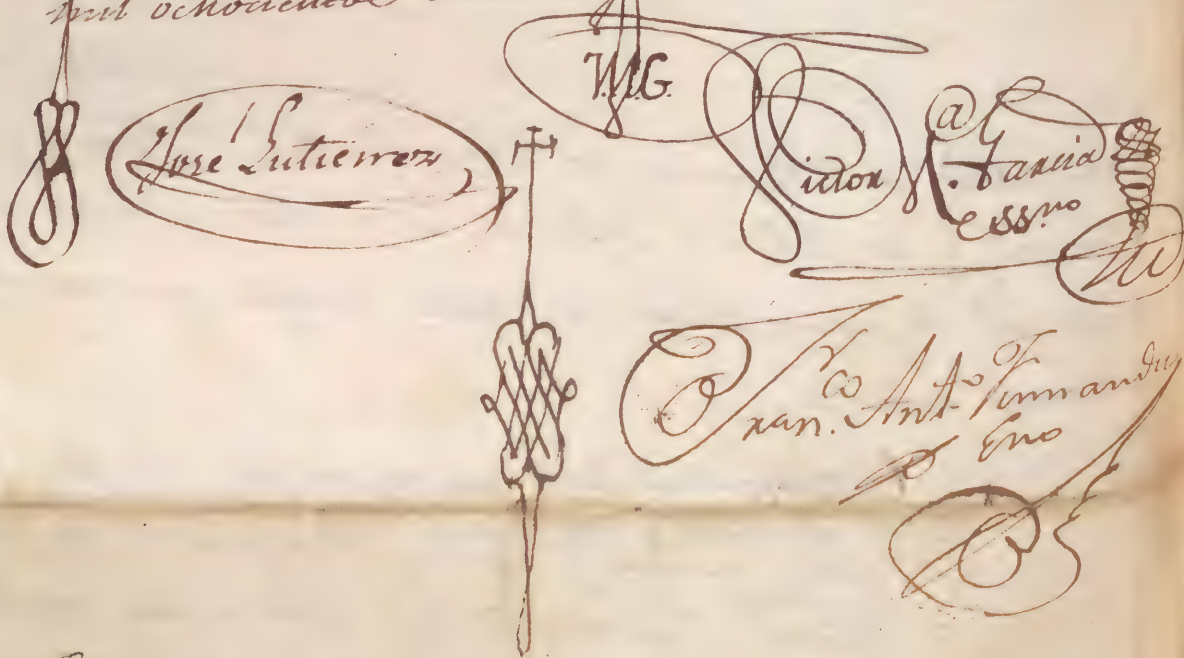 mil ochocientos
José Gutierrez
V.M.G.
Victor M.ª Garcia
Essno
Fran.co Ant.o Fernandez
Eno